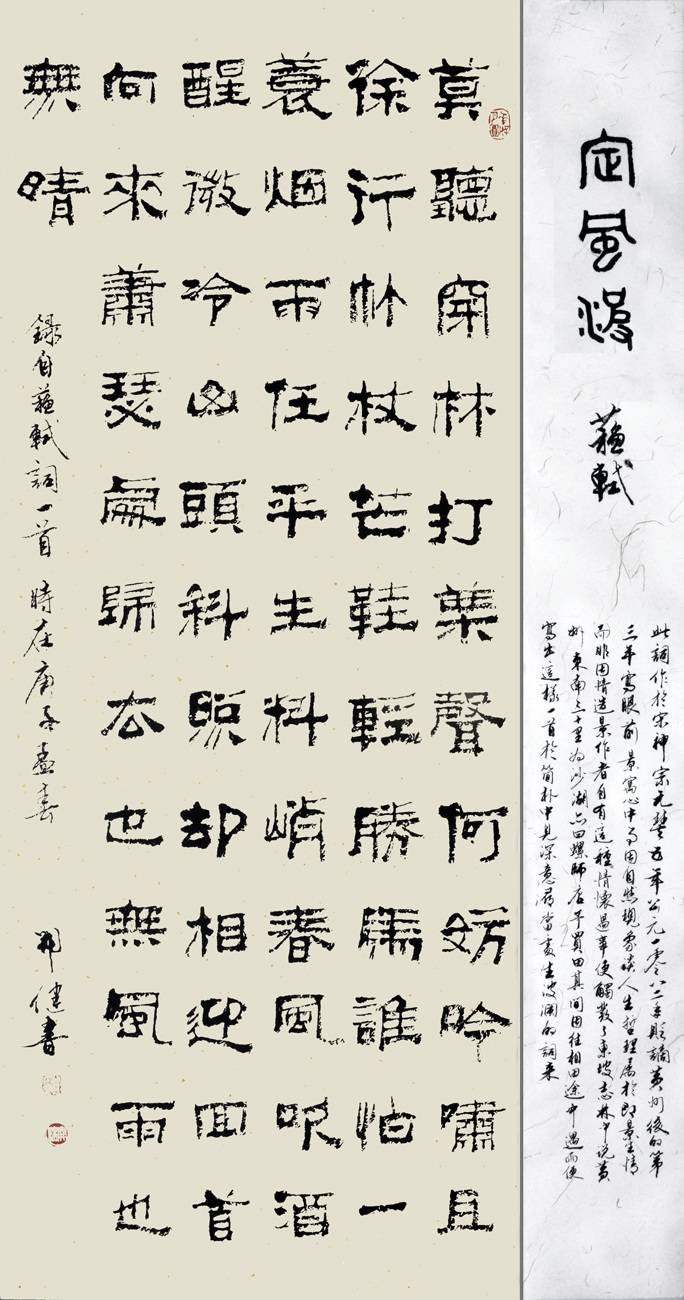 定風波
蘇軾
此詞作於宋神宗元豐五年公元一零八二年貶謫黃州後的第
三年寫眼前景寓心中事因自然現象談人生哲理屬於即景生情
而非因情造景作者自有這種情懷遇事便觸發了東坡志林中說黃
州東南三十里為沙湖亦曰螺師店予買田其間因往相田途中遇雨便
寫出這樣一首於簡朴中見深意尋常處生波瀾的詞來
莫聽穿林打葉聲何妨吟嘯且
徐行竹杖芒鞋輕勝馬誰怕一
蓑烟雨任平生料峭春風吹酒
醒微冷山頭斜照却相迎回首
向來蕭瑟處歸去也無風雨也
無晴
錄自蘇軾詞一首 時在庚子孟春 健書